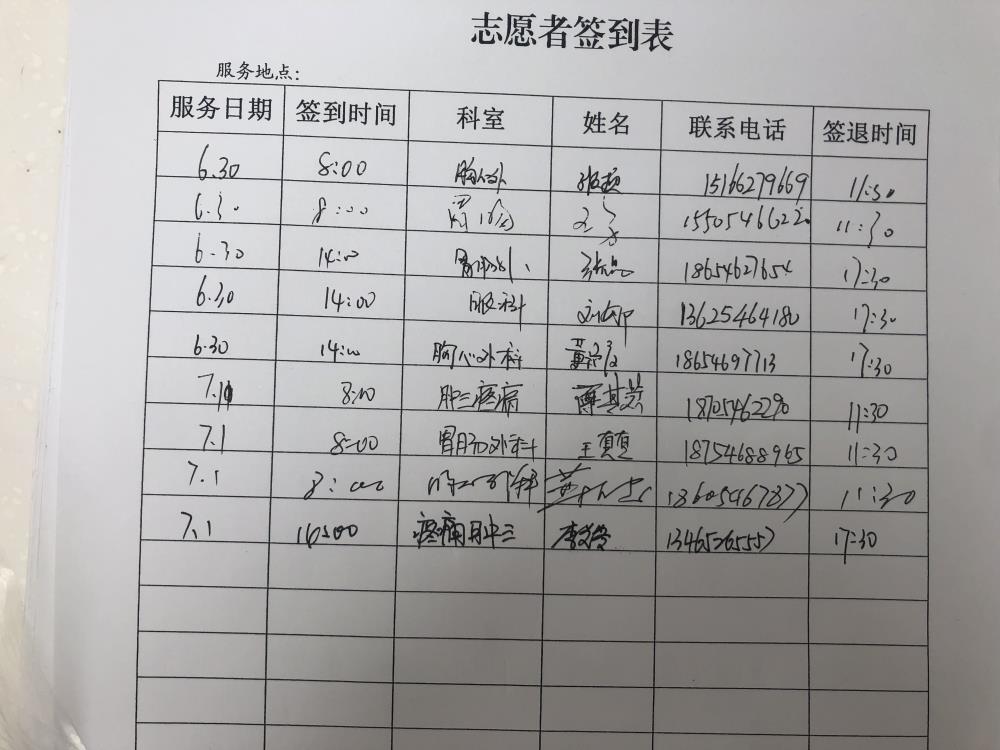 志愿者签到表
服务地点：
服务日期 签到时间 科室 姓名 联系电话 签退时间
6.30 8:00 胸心外 15166279669 11:30
6.30 8:00 15505466220 11:30
6.30 14:00 18654627654 17:30
6.30 14:00 眼科 13625464180 17:30
6.30 14:00 胸心外科 18654697713 17:30
7.1 8:00 肿三疼痛 18705462290 11:30
7.1 8:00 胃肠外科 王真真 18754688965 11:30
7.1 8:00 18605467877 11:30
7.1 疼痛肿三 13465365557 17:30